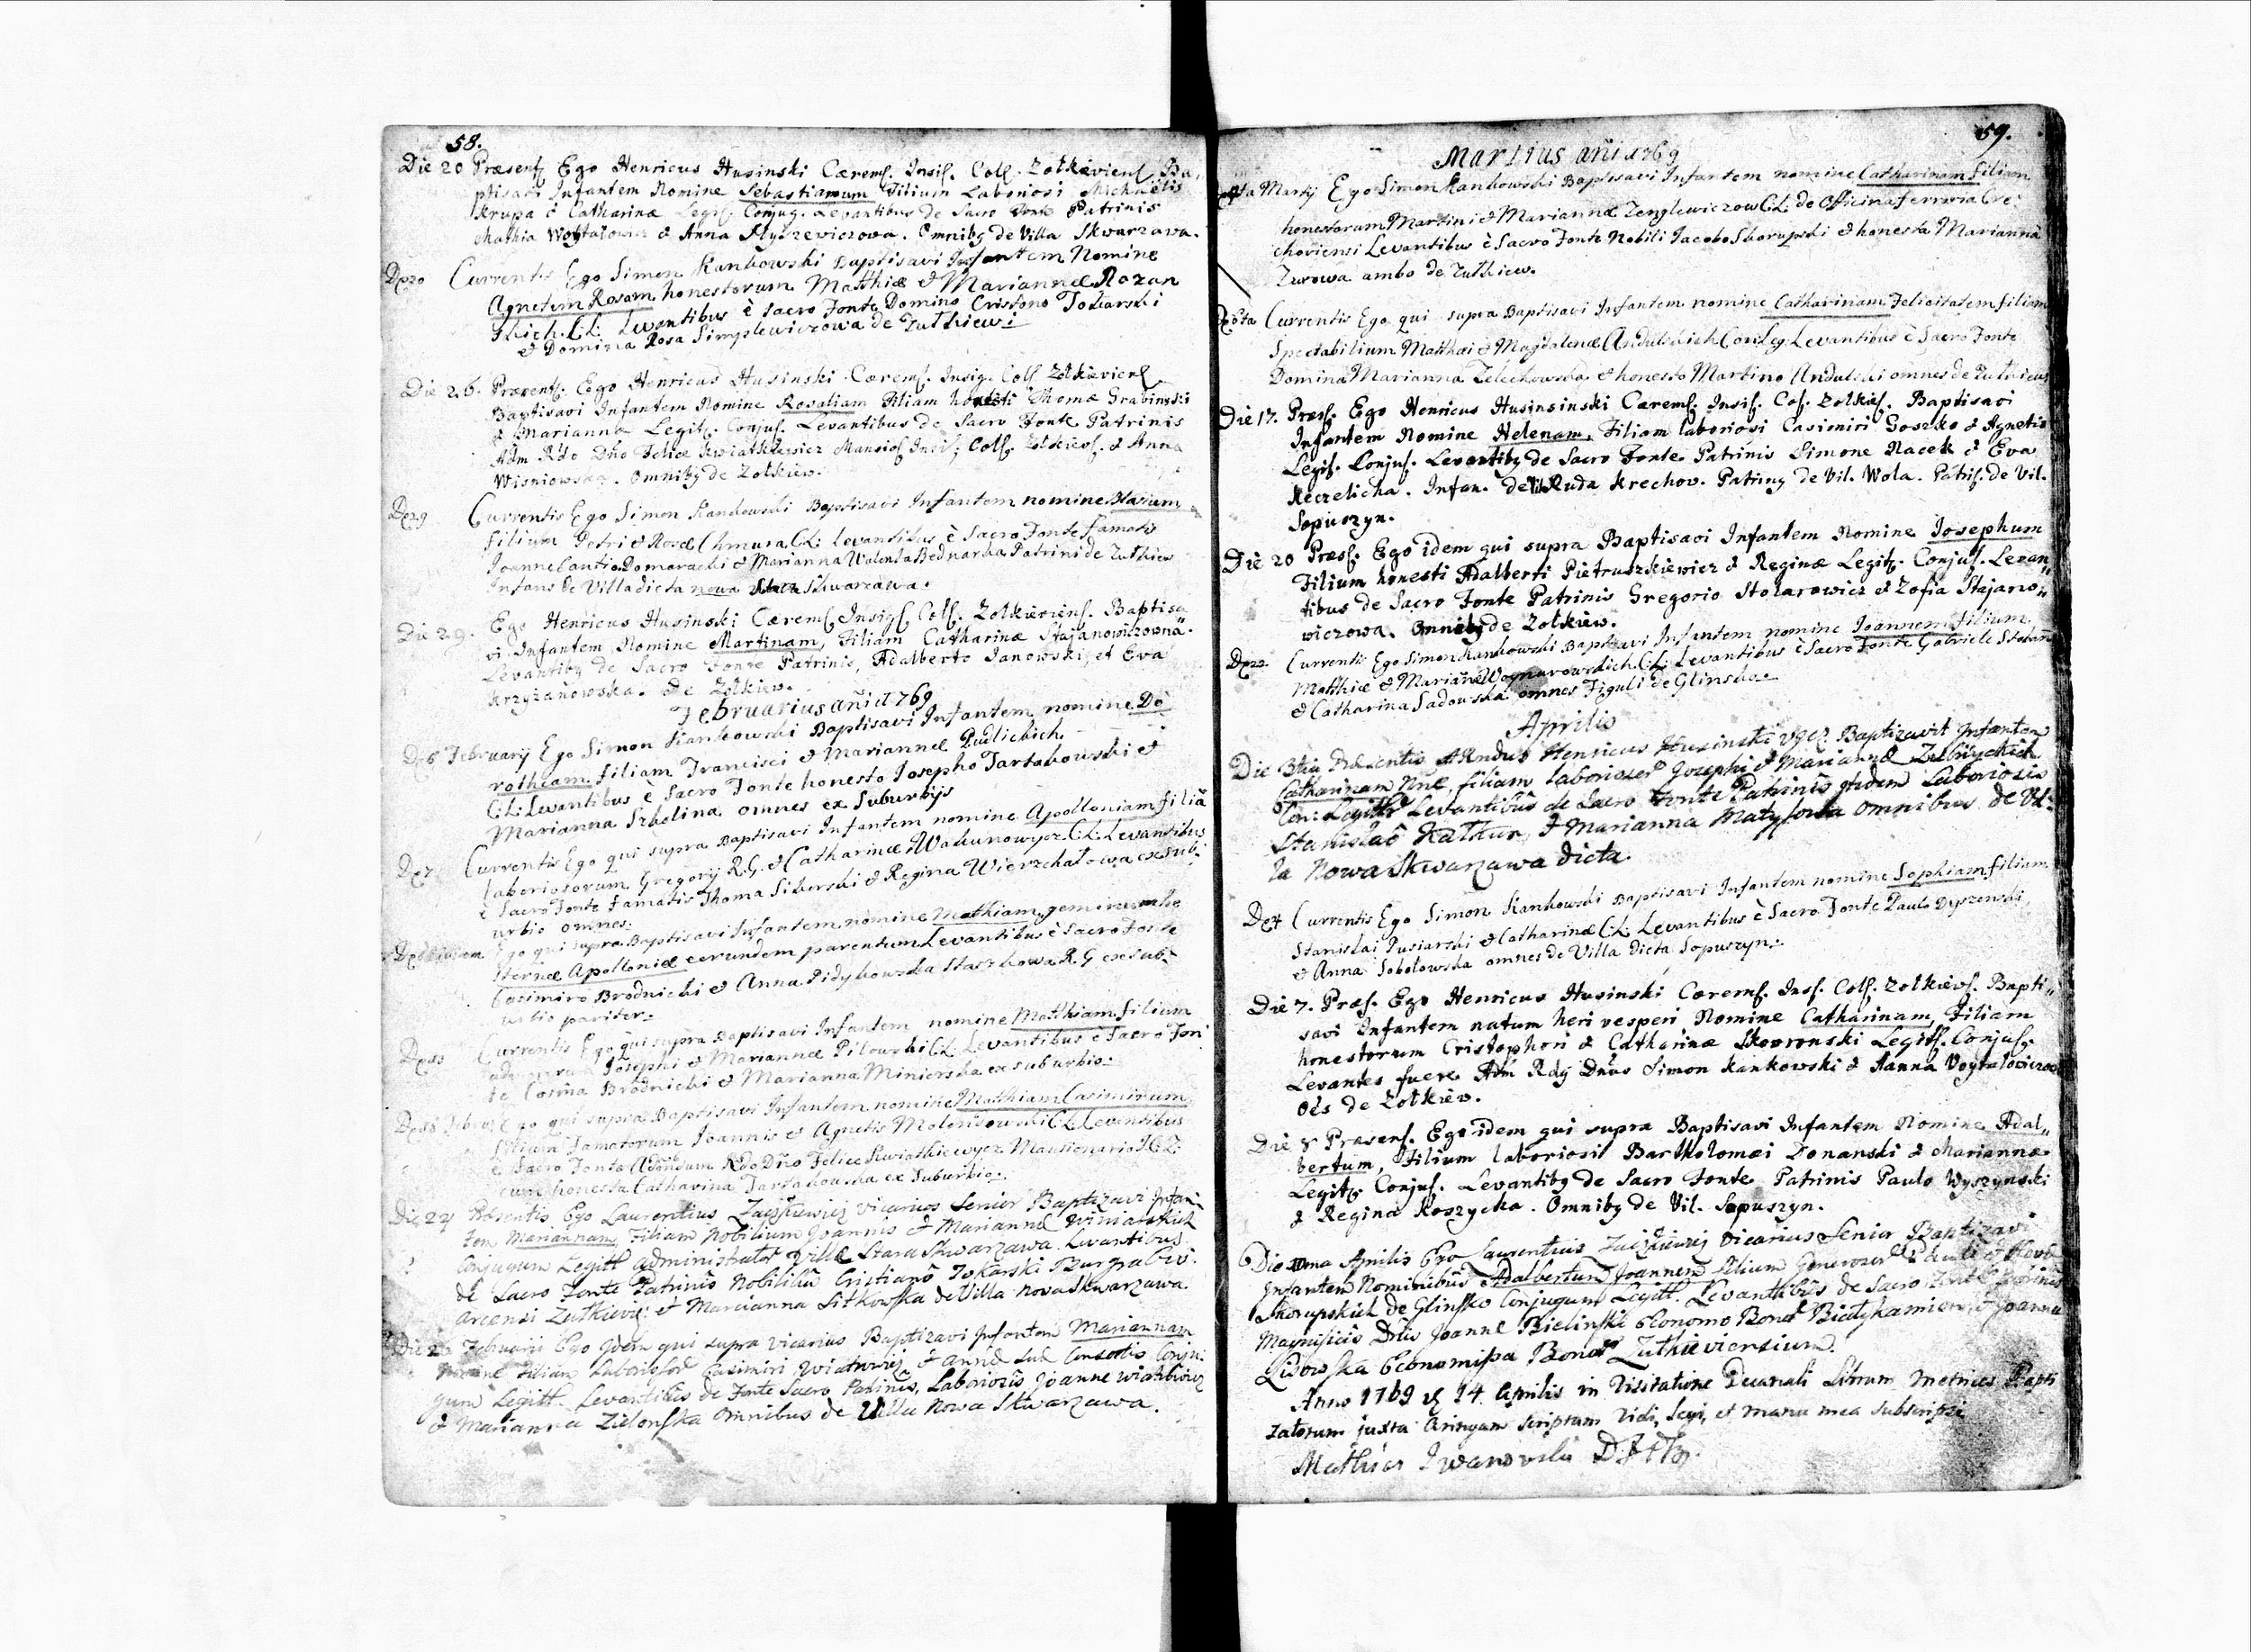 58.
Die 20 Præsent. Ego Henricus Husinski Cærem. Insig. Coll. Zolkiewiens. Ba,,
ptisavi Infantem Nomine Sebastianum Filium Laboriosi Michaëlis
Krupa & Catharinæ Legit. Conjug. Levantibus de Sacro Fonte Patrinis
Mathia & Anna. Omnibq de Villa Skwarzawa.
D 20 Currentis Ego Simon Kankowski Baptisavi Infantem Nomine
Agnetem Rosam honestorum Matthiæ & Mariannæ Rozan
C: L: Levantibus è Sacro Fonte Domino Cristono Tokarski
& Domina Rosa Simplewiczowa de Zulkiew:
Die 26. Præsent. Ego Henricus Husinski Cærem. Insig. Coll Zolkiewiens
Baptisavi Infantem Nomine Rosaliam Filiam honesti Thomæ Grabinski
& Mariannæ Legit. Conjus. Levantibus de Sacro Fonte Patrinis
Adm Rdo Dno Felice Kwiatkiewicz Mansio. Insi; Coll. Zolkiew. & Anna
Wisniowska. Omnibq de Zolkiew.
D 29 Currentis Ego Simon Kankowski Baptisavi Infantem nomine Blasium
filium Petri & Rosæ Chmura C.L: levantibus è Sacro Fonte famatis
Joanne Cantio Domaracki & Marianna Walenta Bednarka Patrini de Zulkiew
Infans de Villa dicta nowa Skwarzawa.
Die 29. Ego Henricus Husinski Cærem. Insig. Coll. Zolkiewiens. Baptisa
vi Infantem Nomine Martinam, Filiam Catharinæ Stajanowiczowna.
Levantibq de Sacro Fonte Patrinis, Adalberto Janowski, et Eva
Krzyżanowska. De Zolkiew.
Februarius añi 1769
D 6 February Ego Simon Kankowski Baptisavi Infantem nomine Do
rotheam filiam Francisci & Mariannæ Pudlickich
C:L: Levantibus è Sacro Fonte honesto Josepho Tartakowski &
Marianna Srbelina omnes ex Suburbijs
D 7 Currentis Ego qui supra Baptisavi Infantem nomine Apolloniam filiã
laboriosorum Gregorij R.G. & Catharinæ Wakunowycz C.L: Levantibus
è Sacro Fonte Famatis Thoma Sikorski & Regina Wierzchałowa ex sub:
urbio omnes.
Ego qui supra Baptisavi Infantem nomine Mathiam, geminum
Apolloniæ eorundem parentum Levantibus è Sacro Fonte
Casimiro Brodnicki & Anna Pidykowska Staszkowa R.G ex sub:
urbio pariter.
Currentis Ego qui supra Baptisavi Infantem nomine Matthiam filium
Josephi & Mariannæ Pilowski C:L: Levantibus è Sacro Fon
te Cosma Brodnicki & Marianna Minierska ex suburbio.
Ego qui supra Baptisavi Infantem nomine Matthiam Casimirum
filium Famatorum Joannis & Agnetis C:L: Levantibus
è Sacro Fonte Rdo Dño Felice Kwiatkiewycz Mansionario I.C.Z.
cum honesta Catharina Tartakowska ex Suburbio.
Die 24 Præsentis Ego Laurentius Zaiszkiewicz Vicarius Senior Baptizavi Infan
tem Mariannam, Filiam Nobilium Joannis & Mariannæ Winiarskich
Conjugum Legitt. Administrator Villæ Stara Skwarzawa. Levantibus
de Sacro Fonte Patrinis Nobilibũ Cristianô Tokarski Burgra
arcensi Zulkiewi: et Marcianna Sitkowska de Villa nova Skwarzawa.
Februarii Ego Idem qui supra Vicarius Baptizavi Infantem Mariannam
Filiam Casimiri & Annæ Conju:
gum Legitt. Levantibus de Fonte Sacro Patrinis, Laboriosis Joanne
& Marianna Zielonska Omnibus de Villa Nowa Skwarzawa.
59.
Martius añi 1769
Martij Ego Simon Kankowski Baptisavi Infantem nomine Catharinam filiam
honestorum Martini & Mariannæ Zenglewiczow C.L: de Officina ferraria Cre:
choviensi Levantibus è Sacro Fonte Nobili Jacobo Skorupski & honesta Marianna
Zurowa ambo de Zulkiew.
Currentis Ego qui supra Baptisavi Infantem nomine Catharinam Felicitatem filiam
Spectabilium Matthæi & Magdalenæ Andulskich Con: Leg: Levantibus è Sacro Fonte
Domina Marianna Zelechowska & honesto Martino Andulski omnes de Zulkiew
Die 17. Præs. Ego Henricus Husinsinski Cærem. Insi. Col. Zolkie. Baptisavi
Infantem Nomine Helenam, Filiam laboriosi Casimiri Goszko & Agnetis
Legit. Conjus. Levantibq de Sacro Fonte Patrinis Simone Nacek & Eva
Keczelicha. Infan. de Vil Ruda Krechow. Patrinq de Vil. Wola. Patris. de Vil.
Sopuszyn.
Die 20 Præs. Ego idem qui supra Baptisavi Infantem Nomine Josephum
Filium honesti Adalberti Pietruszkiewicz & Reginæ Legit. Conjus. Levan,,
tibus de Sacro Fonte Patrinis Gregorio Stolarowicz & Zofia Stajano,,
wiczowa. Omnibq de Zolkiew.
D 22 Currentis Ego Simon Kankowski Baptisavi Infantem nomine Joannem filium
Matthiæ & Mariañæ Woynarowskich C.L: Levantibus è Sacro Fonte Gabriele
& Catharina Sadowska omnes Figuli de Glinsko.
Aprilis
Die 3tia Præsentis ARndus Henricus Husinski Baptizavit Infantem
Catharinam Nñe, filiam laboriosor Josephi & Mariannæ
Con: Legitt. Levantibus de Sacro Fonte Patrinis itidem Laboriosis
Stanislaô Kathur, & Marianna Matysowa Omnibus de Vil:
la Nowa Skwarzawa dicta.
D 4 Currentis Ego Simon Kankowski Baptisavi Infantem nomine Sophiam filiam
Stanislai Pusiarski & Catharinæ C:L: Levantibus è Sacro Fonte Paulo Dyszenski
& Anna Sobotowska omnes de Villa dicta Sopuszyn.
Die 7. Præs. Ego Henricus Husinski Cærem. Ins. Coll. Zolkiew. Bapti,,
savi Infantem natum heri vesperi Nomine Catharinam, Filiam
honestorum Cristophori & Catharinæ Skowronski Legitt. Conjus.
Levantes fuere Adm Rdq Dñus Simon Kankowski & Hanna Voytalowiczowa
Oẽs de Zolkiew.
Die 8 Præsens. Ego idem qui supra Baptisavi Infantem Nomine Adal,,
bertum, Filium laboriosi Bartholomæi Donanski & Mariannæ
Legit. Conjus. Levantibq de Sacro Fonte Patrinis Paulo Wyszynski
& Regina Koszycka. Omnibq de Vil. Sopuszyn.
Aprilis Ego Laurentius Zaiszkiewicz Vicarius Senior Baptizavi
Infantem Nominibus Adalbertum Joannem Filium Generosor
Skorupskich de Glinsko Conjugum Legitt. Levantibus de Sacro Fonte Patrinis
Magnificis Dñis Joanne Bielinski Economo Bonor Bialykamien & Joanna
Lisowska Economissa Bonor Zulkieviensium.
Anno 1769 d 14 Aprilis in Visitatione Decanali Librum Metrices Bapti
zatorum juxta Scriptum Vidi, legi, et manu mea Subscripsi
Mathias Iwanowski